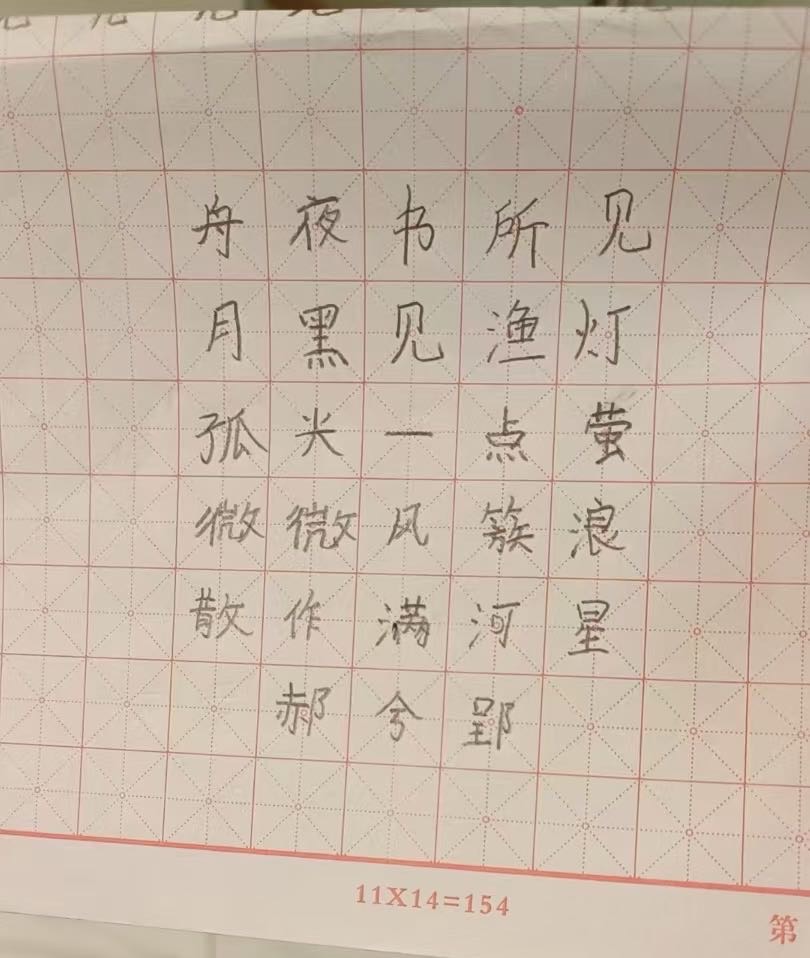 舟夜书所见
月黑见渔灯
孤光一点萤
微微风簇浪
散作满河星
郝兮郢
11X14=154
第